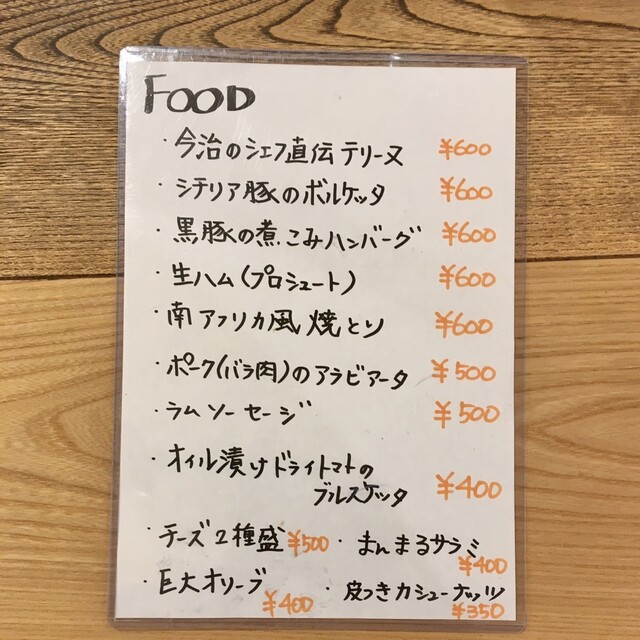 FOOD
・今治のシェフ直伝テリーヌ ¥600
・シチリア豚のポルケッタ ¥600
・黒豚の煮こみハンバーグ ¥600
・生ハム(プロシュート) ¥600
・南アフリカ風焼とり ¥600
・ポーク(バラ肉)のアラビアータ ¥500
・ラムソーセージ ¥500
・オイル漬けドライトマトの
ブルスケッタ ¥400
・チーズ2種盛 ¥500 ・まんまるサラミ ¥400
・巨大オリーブ ¥400 ・皮つきカシューナッツ ¥350